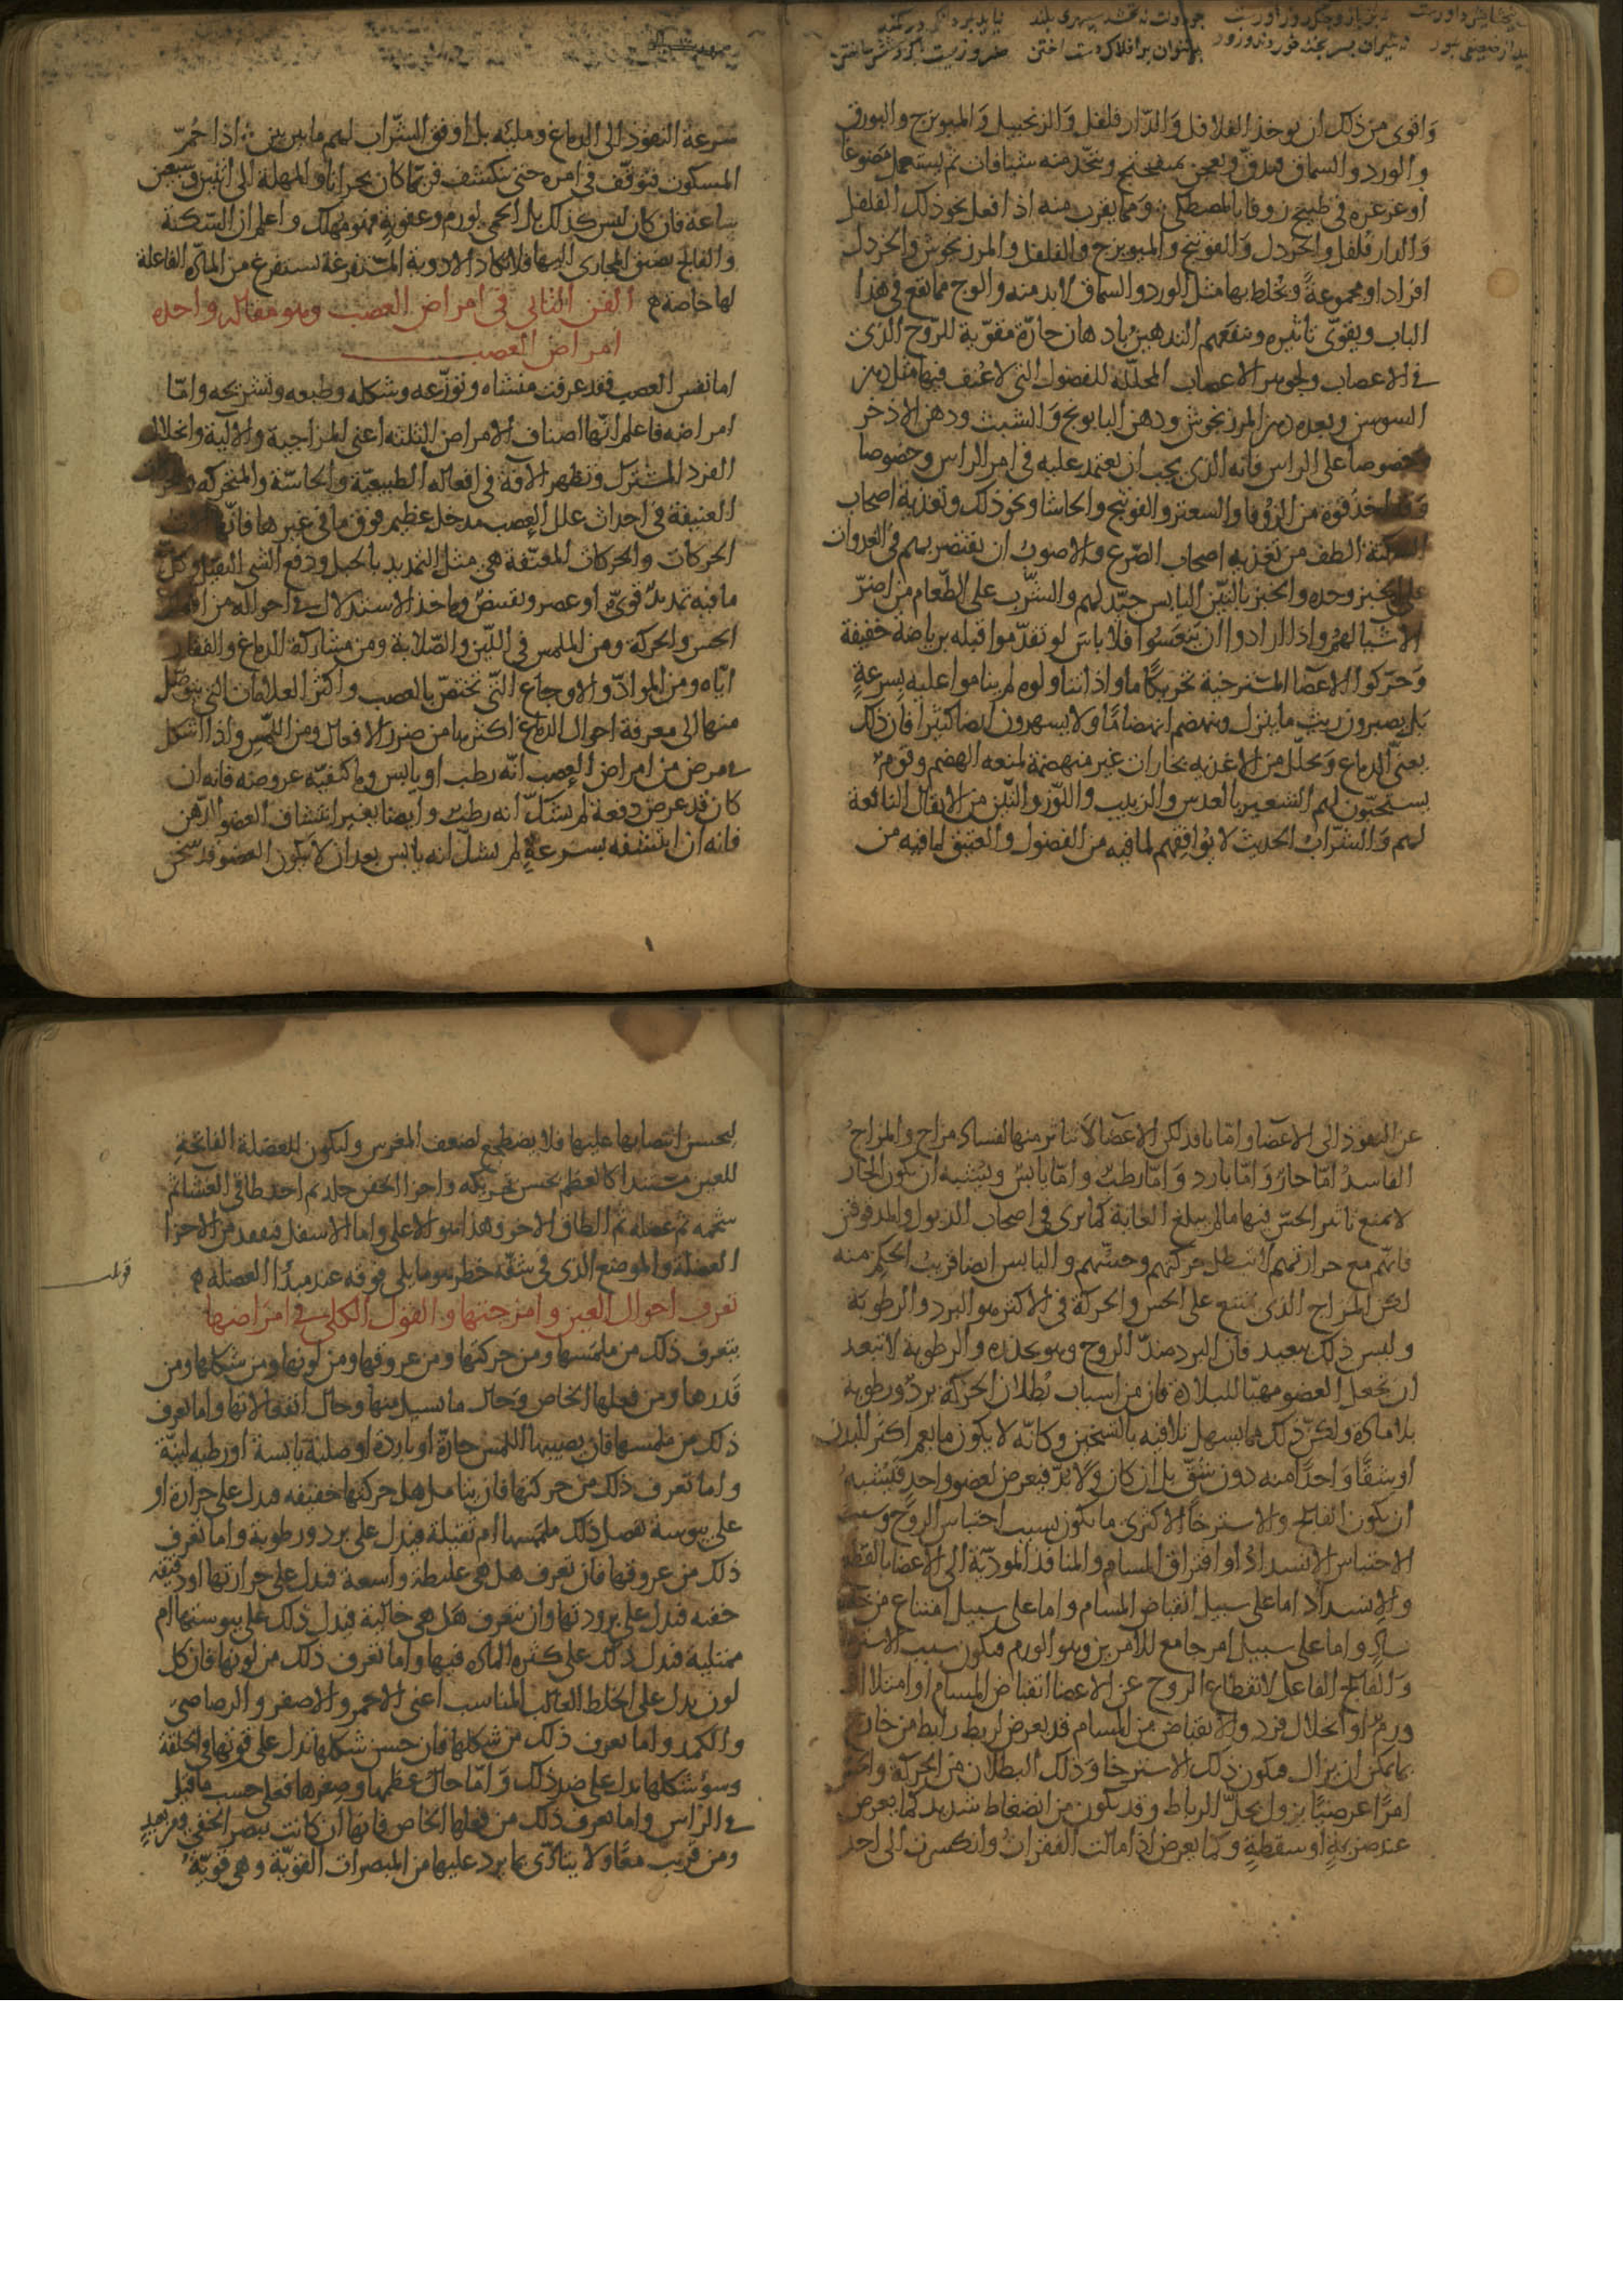 واقوى من ذلك ان يوخذ الفلافل والدار فلفل والزنجبيل والميويزج والبورق
والورد والسماق فيدق ويعجن بميفختج ويتخذ منه شيافات ثم يستعمل مضوغا
او غرغره في طبيخ زوفا بالمصطكى ومما يقرب منه اذا فعل نحو ذلك الفلفل
والدار فلفل والخردل والفوتنج والميويزج والفلفل والمرزنجوش والخردل
افرادا ومجموعة ويخلط بها مثل الورد والسماق لابد منه والوج مما ينفع في هذا
الباب ويقوى تاثيره وينفعهم التدهين بادهان حارة مقوية للروح الذى
في الاعصاب ولجوهر الاعصاب المحللة للفضول التى لا عنف فيها مثل دهن
السوسن وبعده دهن المرزنجوش ودهن البابونج والشبت ودهن الاذخر
وخصوصا على الراس فانه الذى يجب ان يعتمد عليه في امر الراس وخصوصا
وقد اخذ قوة من الزوفا والسعتر والفوتنج والحاشا ونحو ذلك وتغذية اصحاب
السكتة الطف من تغذيه اصحاب الصرع والاصوب ان يقتصر بهم في الغدوات
على الخبز وحده والخبز بالتين اليابس جيد لهم والشرب على الطعام من اضر
الاشيا لهم واذا ارادوا ان يتعشوا فلا باس لو تقدموا قبله برياضة خفيفة
وحركوا الاعضا المسترخية تحريكا ما واذا تناولوه لم يناموا عليه بسرعة
بل يصبرون ريث ما ينزل وينهضم انهضاما ولا يسهرون ايضا كثيرا فان ذلك
يعنى الدماغ ويحلل من الاغذيه بخارات غير منهضمة لمنعه الهضم وقوم
يستحبون لهم الشعير بالعدس والزبيب واللوز والتين من الانقال النافعة
لهم والشراب الحديث لا يوافقهم لما فيه من الفضول والعتيق لما فيه من
سرعة النفوذ الى الدماغ وملئه بل اوفق الشراب لهم ما بين بين واذا حم
المسكون فتوقف في امره حتى ينكشف فربما كان بحرانا والمهلة الى اثنين وسبعين
ساعة فان كان ليس كذلك بل الحمى لورم وعفونة فهو مهلك واعلم ان السكتة
والفالج يضيق المجارى اليها فلا تكاد الادوية المستفرغة تستفرغ من المادة الفاعلة
لها خاصة الفن الثانى في امراض العصب وهو مقالة واحده
امراض العصب
اما نفس العصب فقد عرفت منشاه وتوزعه وشكله وطبعه وتشريحه واما
امراضه فاعلم انها اصناف الامراض الثلثة اعنى المزاجية والالية وانحلال
الفرد المشترك وتظهر الافة في افعاله الطبيعية والحاسة والمتحركه
العنيفة في احداث علل العصب مدخل عظيم فوق ما في غيرها فانها
الحركات والحركات المعنفة هي مثل التمديد بالحبل ودفع الشى الثقيل وكل
ما فيه تمديد قوى او عصر وتقبض وماخذ الاستدلال في احواله من
الحس والحركة ومن الملمس في اللين والصلابة ومن مشاركة الدماغ والفقار
اياه ومن المواد والاوجاع التى تختص بالعصب واكثر العلامات التى يتوصل
منها الى معرفة احوال الدماغ اكثرها من ضرر الافعال ومن اللمس واذا اشكل
في مرض من امراض العصب انه رطب او يابس وما كيفية عروضه فانه ان
كان قد عرض دفعة لم يشك انه رطب وايضا يعتبر انتشاف العضو الدهن
فانه ان انتشفه بسرعة لم يشك انه يابس بعد ان لا يكون العضو قد سخن
عن النفوذ الى الاعضا واما نافذ لكن الاعضا لا تتاثر منها لفساد مزاج والمزاج
الفاسد اما حار واما بارد واما رطب واما يابس ويشبه ان يكون الحار
لا يمنع تاثير الحس فيها ما لم يبلغ الغاية كما يرى في اصحاب الذبول والمدقوقين
فانهم مع حرارتهم لا تبطل حركتهم وحسهم واليابس ايضا قريب الحكم منه
لكن المزاج الذى يمنع على الحس والحركة في الاكثر هو البرد والرطوبة
وليس ذلك ببعيد فان البرد ضد الروح وهو يخدره والرطوبة لا تبعد
ان تجعل العضو مهيا للبلادة فان من اسباب بطلان الحركة برد ورطوبة
بلا مادة ولكن ذلك مما يسهل تلافيه بالتسخين وكانه لا يكون مما يعم اكثر البدن
او شقا واحدا منه دون شق بل ان كان ولا بد فيعرض لعضو واحد فيشبه
ان يكون الفالج والاسترخا الاكثرى ما يكون بسبب احتباس الروح وسبب
الاحتباس الانسداد او افتراق المسام والمنافذ المودية الى الاعضا بالقطع
والانسداد اما على سبيل انقباض المسام واما على سبيل امتناع من خلط
ساد واما على سبيل امر جامع للامرين وهو الورم فيكون سبب
والفالج الفاعل لانقطاع الروح عن الاعضا انقباض المسام او امتلا
ورم او انحلال فرد والانقباض من المسام قد يعرض لربط رابط من خارج
بما يمكن ان يزال فيكون ذلك الاسترخا وذلك البطلان من الحركة
امرا عرضيا يزول بحل الرباط وقد يكون من انضغاط شديد كما يعرض
عند ضربة او سقطة وكما يعرض اذا مالت الفقرات وانكسرت الى احد
ليحسن انتصابها عليها فلا يضطجع لضعف المغرس وليكون للعضلة الفاتحة
للعين مستندا كالعظم يحسن تحريكه واجزا الجفن جلد ثم احد طاقى الغشا ثم
شحمه ثم عضله ثم الطاق الاخر وهذا هو الاعلى واما الاسفل فيفقد من الاجزا
العضلة والموضع الذى في شقه خطر هو ما يلى موقه عند مبدا العضلة
تعرف احوال العين وامزجتها والقول الكلى في امراضها
يتعرف ذلك من ملمسها ومن حركتها ومن عروقها ومن لونها ومن شكلها ومن
قدرها ومن فعلها الخاص وحال ما يسيل منها وحال انفعالاتها واما تعرف
ذلك من ملمسها فان يصيبها اللمس حارة او باردة او صلبة يابسة او رطبه لينة
واما تعرف ذلك من حركتها فان يتامل هل حركتها خفيفه فيدل على حرارة او
على يبوسة يفصل ذلك ملمسها ام ثقيلة فيدل على برد ورطوبة واما تعرف
ذلك من عروقها فان تعرف هل هي غليظة واسعة فيدل على حرارتها او دقيقه
خفيه فيدل على برودتها وان يتعرف هل هي خالية فيدل ذلك على يبوستها ام
ممتلية فيدل ذلك على كثرة المادة فيها واما تعرف ذلك من لونها فان كل
لون يدل على الخلط الغالب المناسب اعنى الاحمر والاصفر والرصاصى
والكمد واما تعرف ذلك من شكلها فان حسن شكلها يدل على قوتها في الخلقة
وسوء شكلها يدل على ضد ذلك واما حال عظمها وصغرها فعلى حسب ما قيل
في الراس واما تعرف ذلك من فعلها الخاص فانها ان كانت تبصر الخفى من بعيد
ومن قريب معا ولا يتاذى بما يرد عليها من المبصرات القوية فهي قوية